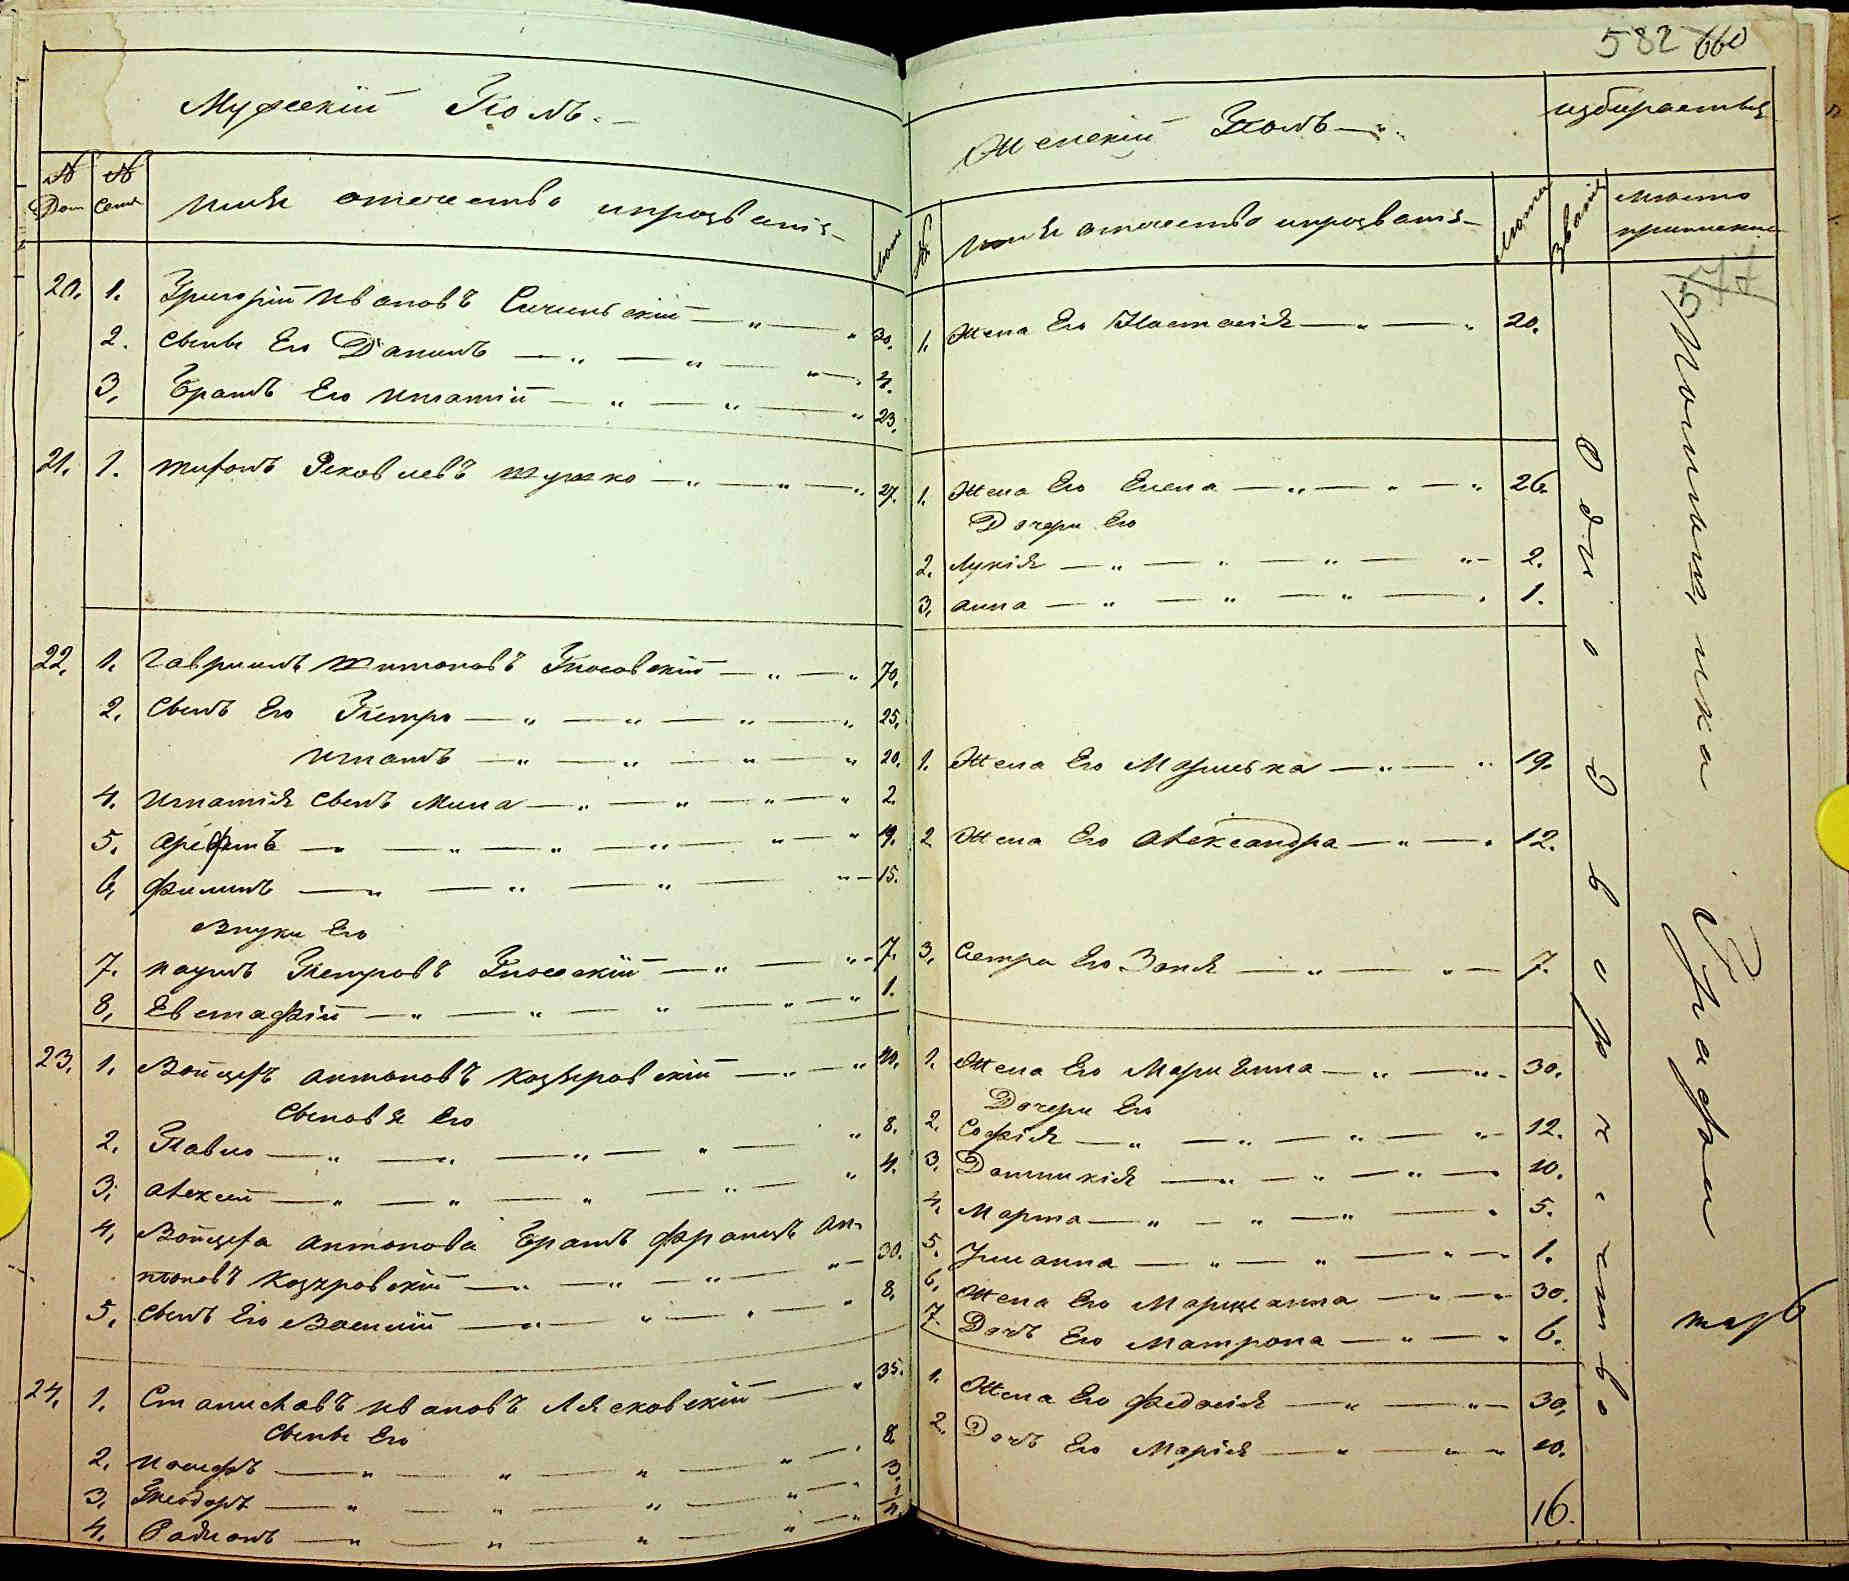 Мужескій Полъ.
№ Дом
№ Семи
имя отечество ипрозваніе
лета
20. 1. Григорій Ивановъ Сичинскій 30.
2. Сынъ Его Данилъ 4.
3. Братъ Его Игнатій 23.
21. 1. Яковлевъ 27.
22. 1. Гавриилъ 70.
2. Сынъ Его Петро 25.
Игнатъ 20.
4. Игнатія Сынъ Мина 2.
5. 19.
6. Филипъ 15.
Внуки Его
7. Наумъ Петровъ 7.
8. Евстафій 1.
23. 1. Войцехъ Антоновъ Козыровскій 40.
Сыновья Его
2. Павло 8.
3. Алексей 4.
4. Войцеха Антонова Братъ Францъ Ан-
тоновъ Козыровскій 30.
5. Сынъ Его Василій 8.
24. 1. Станиславъ Ивановъ Лясковскій 35.
Сыны Его
2. Иосифъ 8.
3. Теодоръ 3.
4. Радионъ
582 660
Женскій Полъ
избирается
№
имя отечество ипрозваніе
лета
званія
место
приписки
577
1. Жена Его Настасія 20.
1. Жена Его Елена 26.
Дочери Его
2. Лукія 2.
3. Анна 1.
1. Жена Его Марцыка 19.
2 Жена Его Александра 12.
3. Сестра Его Зоня 7.
1. Жена Его Марианна 30.
Дочери Его
2. Софія 12.
3. Доминикія 10.
4. Марта 5.
5. Юлианна 1.
6. Жена Его Марцианна 30.
7. Дочъ Его Матрона 6.
1. Жена Его Федосія 30.
2. Дочъ Его Марія 10.
16.
Однодворчество
Графа